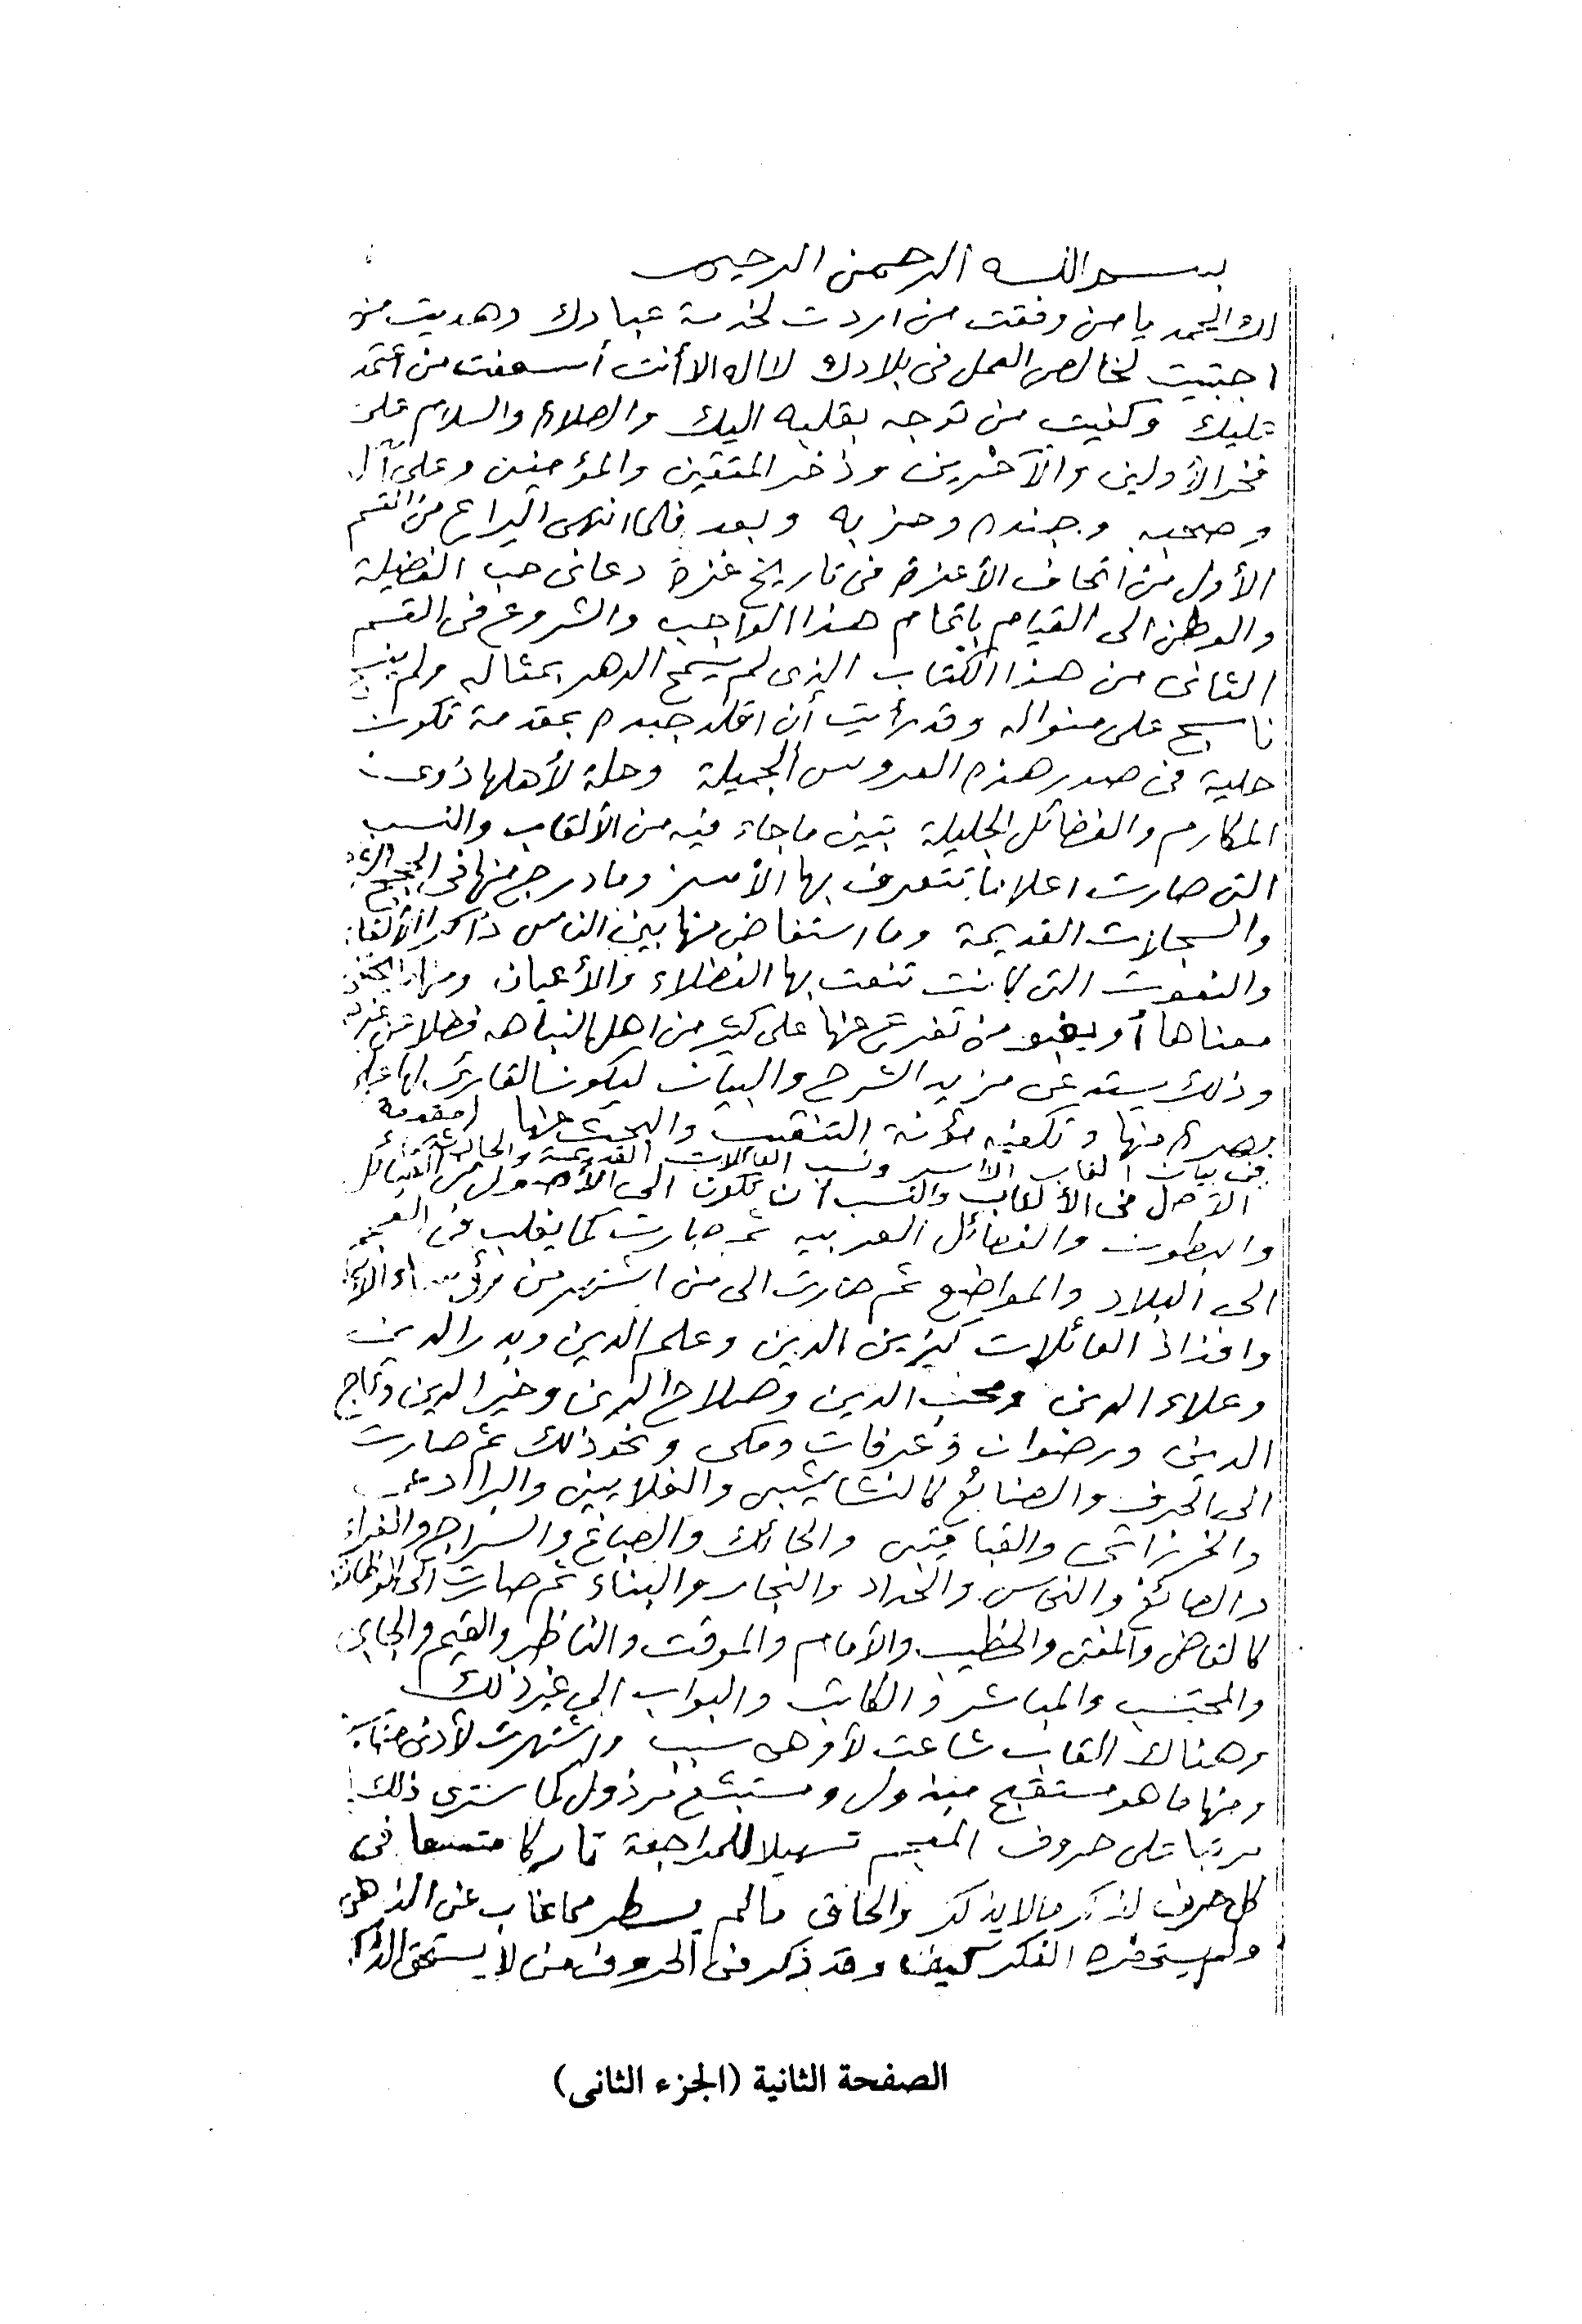 بسم الله الرحمن الرحيم
لك الحمد يا من وفقت من اردت لخدمة عبادك وهديت من
اجتبيت لخالص العمل فى بلادك لا اله الا أنت أسعفت من أعتمد
عليك وكفيت من توجه بقلبه اليك والصلاة والسلام على
فخر الأولين والآخرين وذخر المتقين والمؤمنين وعلى آله
وصحبه وجنده وحزبه وبعد فلما انتهى اليراع من القسم
الأول من اتحاف الأعزة فى تاريخ غزة دعانى حب الفضيلة
والوطن الى القيام باتمام هذا الواجب والشروع فى القسم
الثانى من هذا الكتاب الذى لم يسمح الدهر بمثاله ولم ينسج
ناسج على منواله وقد رأيت أن اقلد جيده بمقدمة تكون
حلية فى صدر هذه العروس الجميلة وحلة لأهلها ذوى
المكارم والفضائل الجليلة بتبين ما جاء فيه من الألقاب والنسب
التى صارت اعلاما تتعرف بها الأسر وما درج منها فى الحجج
والسجلات القديمة وما استفاض منها بين الناس ذاكرا الألقاب
والنعوت التى كانت تنعت بها الفضلاء والأعيان
معناها أو يغيو من تفرع عنها على كثير من اهل النباهه فضلا عن غيرهم
وذلك يستدعى مزيد الشرح والبيان ليكون القارئ لها على
بصيرة منها وتكفيه مؤنة التنقيب والبحث عنها (مقدمة
فى بيان القاب الأسر ونسب العائلات القديمة والحادثة
الأصل فى الألقاب والنسب ان تكون الى الأصول من القبائل
والبطون والفصائل العربيه ثم صارت كما يغلب فى العجم
الى البلاد والمواضع ثم صارت الى من اشتهر من رؤساء الأسر
وافذاذ العائلات كزين الدين وعلم الدين وبدر الدين
وعلاء الدين ومحب الدين وصلاح الدين وخير الدين وتاج
الدين ورضوان وعرفات ومكى ونحو ذلك ثم صارت
الى الحرف والصنائع كالنشاشيبى والغلايينى والبرادعى
والخرزاتى والقباقيبى والحائك والصباغ والسراج والفراء
والصائغ والنحاس والحداد والنجار والبناء ثم صارت الى الوظائف
كالقاضى والمفتى والخطيب والأمام والموقت والناظر والقيم والجابى
والمحتسب والمباشر والكاتب والبواب الى غير ذلك
وهناك القاب شاعت لأوهى سبب واشتهرت لأدنى مناسبة
ومنها ما هو مستقبح مبذول ومستبشع مرذول كما سترى ذلك
مرتبا على حروف المعجم تسهيلا للمراجعة تاركا متسعا فى
كل حرف لذكر ما لا يذكر والحاق ما لم يسطر مما غاب عن الذهن
ولم يستحضره الفكر كيف وقد ذكر فى الحروف من لا يستحق الذكر
الصفحة الثانية (الجزء الثانى)